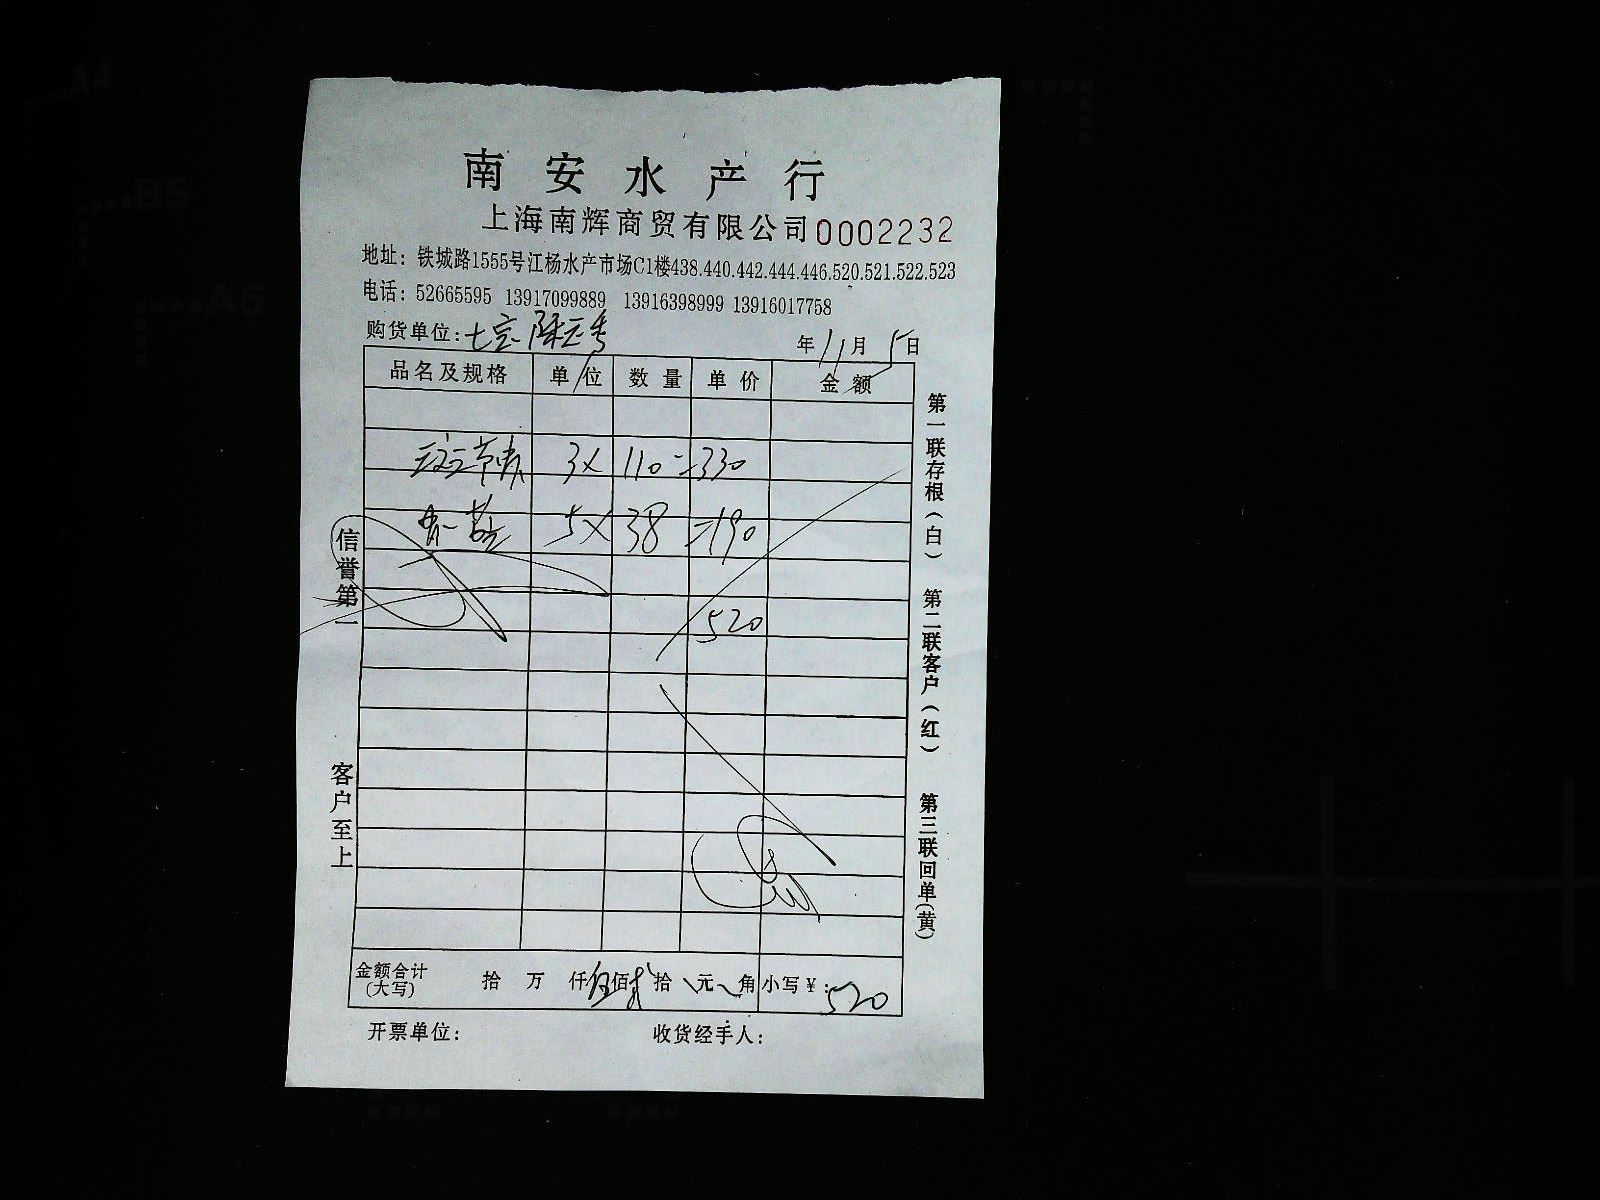 南安水产行
上海南辉商贸有限公司 0002232
地址：铁城路1555号江杨水产市场C1楼438.440.442.444.446.520.521.522.523
电话：52665595 13917099889 13916398999 13916017758
购货单位：七宝 年11月5日
品名及规格 单位 数量 单价 金额
3× 110 =330
5× 38 =190
520
信誉第一
客户至上
第一联存根（白）
第二联客户（红）
第三联回单（黄）
金额合计（大写） 拾 万 仟伍佰贰拾 元 角 小写￥：520
开票单位： 收货经手人：
A4
B5
A5